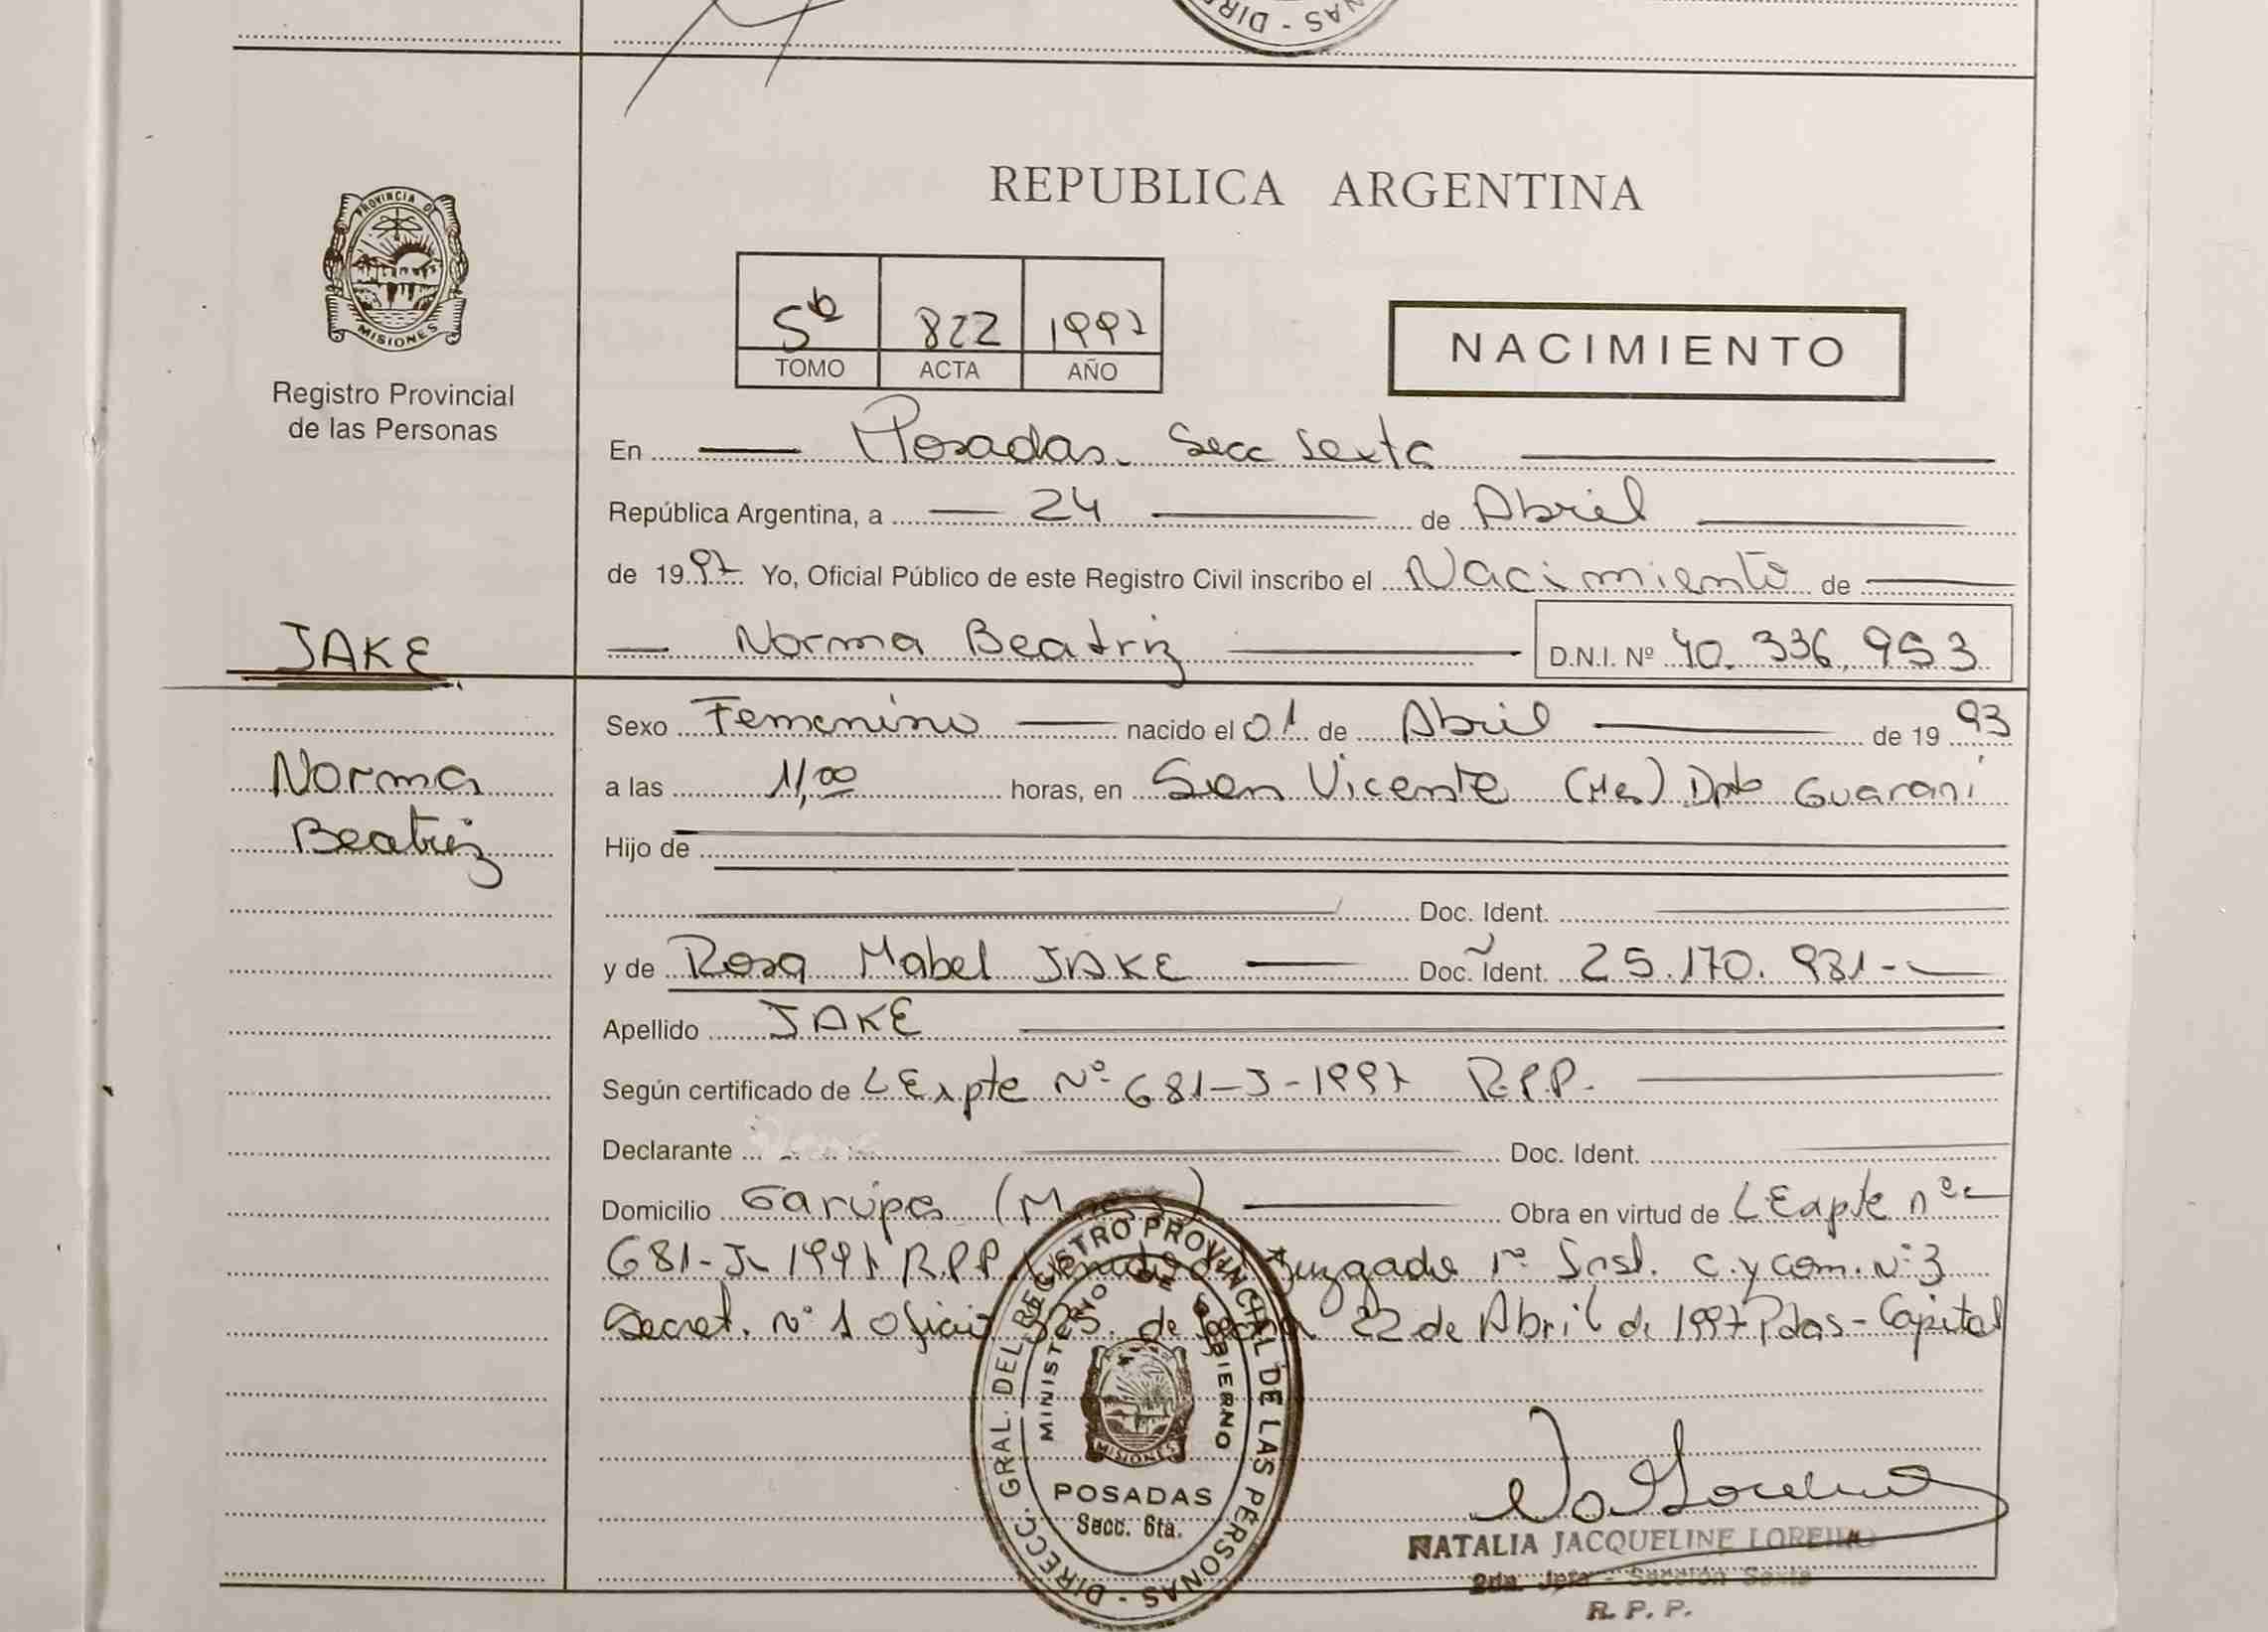 DIRE - NAS
REPUBLICA ARGENTINA
PROVINCIA DE
MISIONES
Registro Provincial
de las Personas
5º 822 1997
TOMO ACTA AÑO
NACIMIENTO
En Posadas. Secc Sexta
República Argentina, a 24 de Abril
de 1997 Yo, Oficial Público de este Registro Civil inscribo el Nacimiento de
JAKE
Norma Beatriz D.N.I. Nº 40.336.953
Norma
Beatriz
Sexo Femenino nacido el 01 de Abril de 1993
a las 11,00 horas, en San Vicente (Mes) Dpto Guarani
Hijo de
Doc. Ident.
y de Rosa Mabel JAKE Doc. Ident. 25.170.931-
Apellido JAKE
Según certificado de L Expte Nº 681-J-1997 R.P.P.
Declarante Doc. Ident.
Domicilio Garupa Obra en virtud de L Expte nº
681-J-1997 R.P.P. Juzgado 1º Inst. C. y Com. Nº 3
Secret. nº 1 Oficio 325. de 22 de Abril de 1997 Pdas-Capital
DIRECC. GRAL. DEL REGISTRO PROVINCIAL DE LAS PERSONAS -
MINISTERIO DE GOBIERNO
MISIONES
POSADAS
Secc. 6ta.
NATALIA JACQUELINE LOREIRO
2da. Jefa - Sección Sexta
R. P. P.